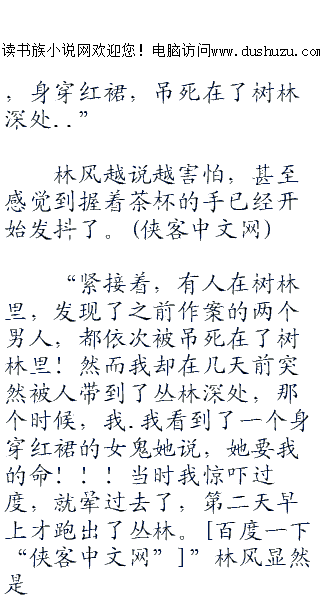 读书族小说网欢迎您！电脑访问www.dushuzu.com
，身穿红裙，吊死在了树林
深处..”
林风越说越害怕，甚至
感觉到握着茶杯的手已经开
始发抖了。(侠客中文网)
“紧接着，有人在树林
里，发现了之前作案的两个
男人，都依次被吊死在了树
林里！然而我却在几天前突
然被人带到了丛林深处，那
个时候，我.我看到了一个身
穿红裙的女鬼她说，她要我
的命！！！当时我惊吓过
度，就晕过去了，第二天早
上才跑出了丛林。[百度一下
“侠客中文网”]”林风显然
是